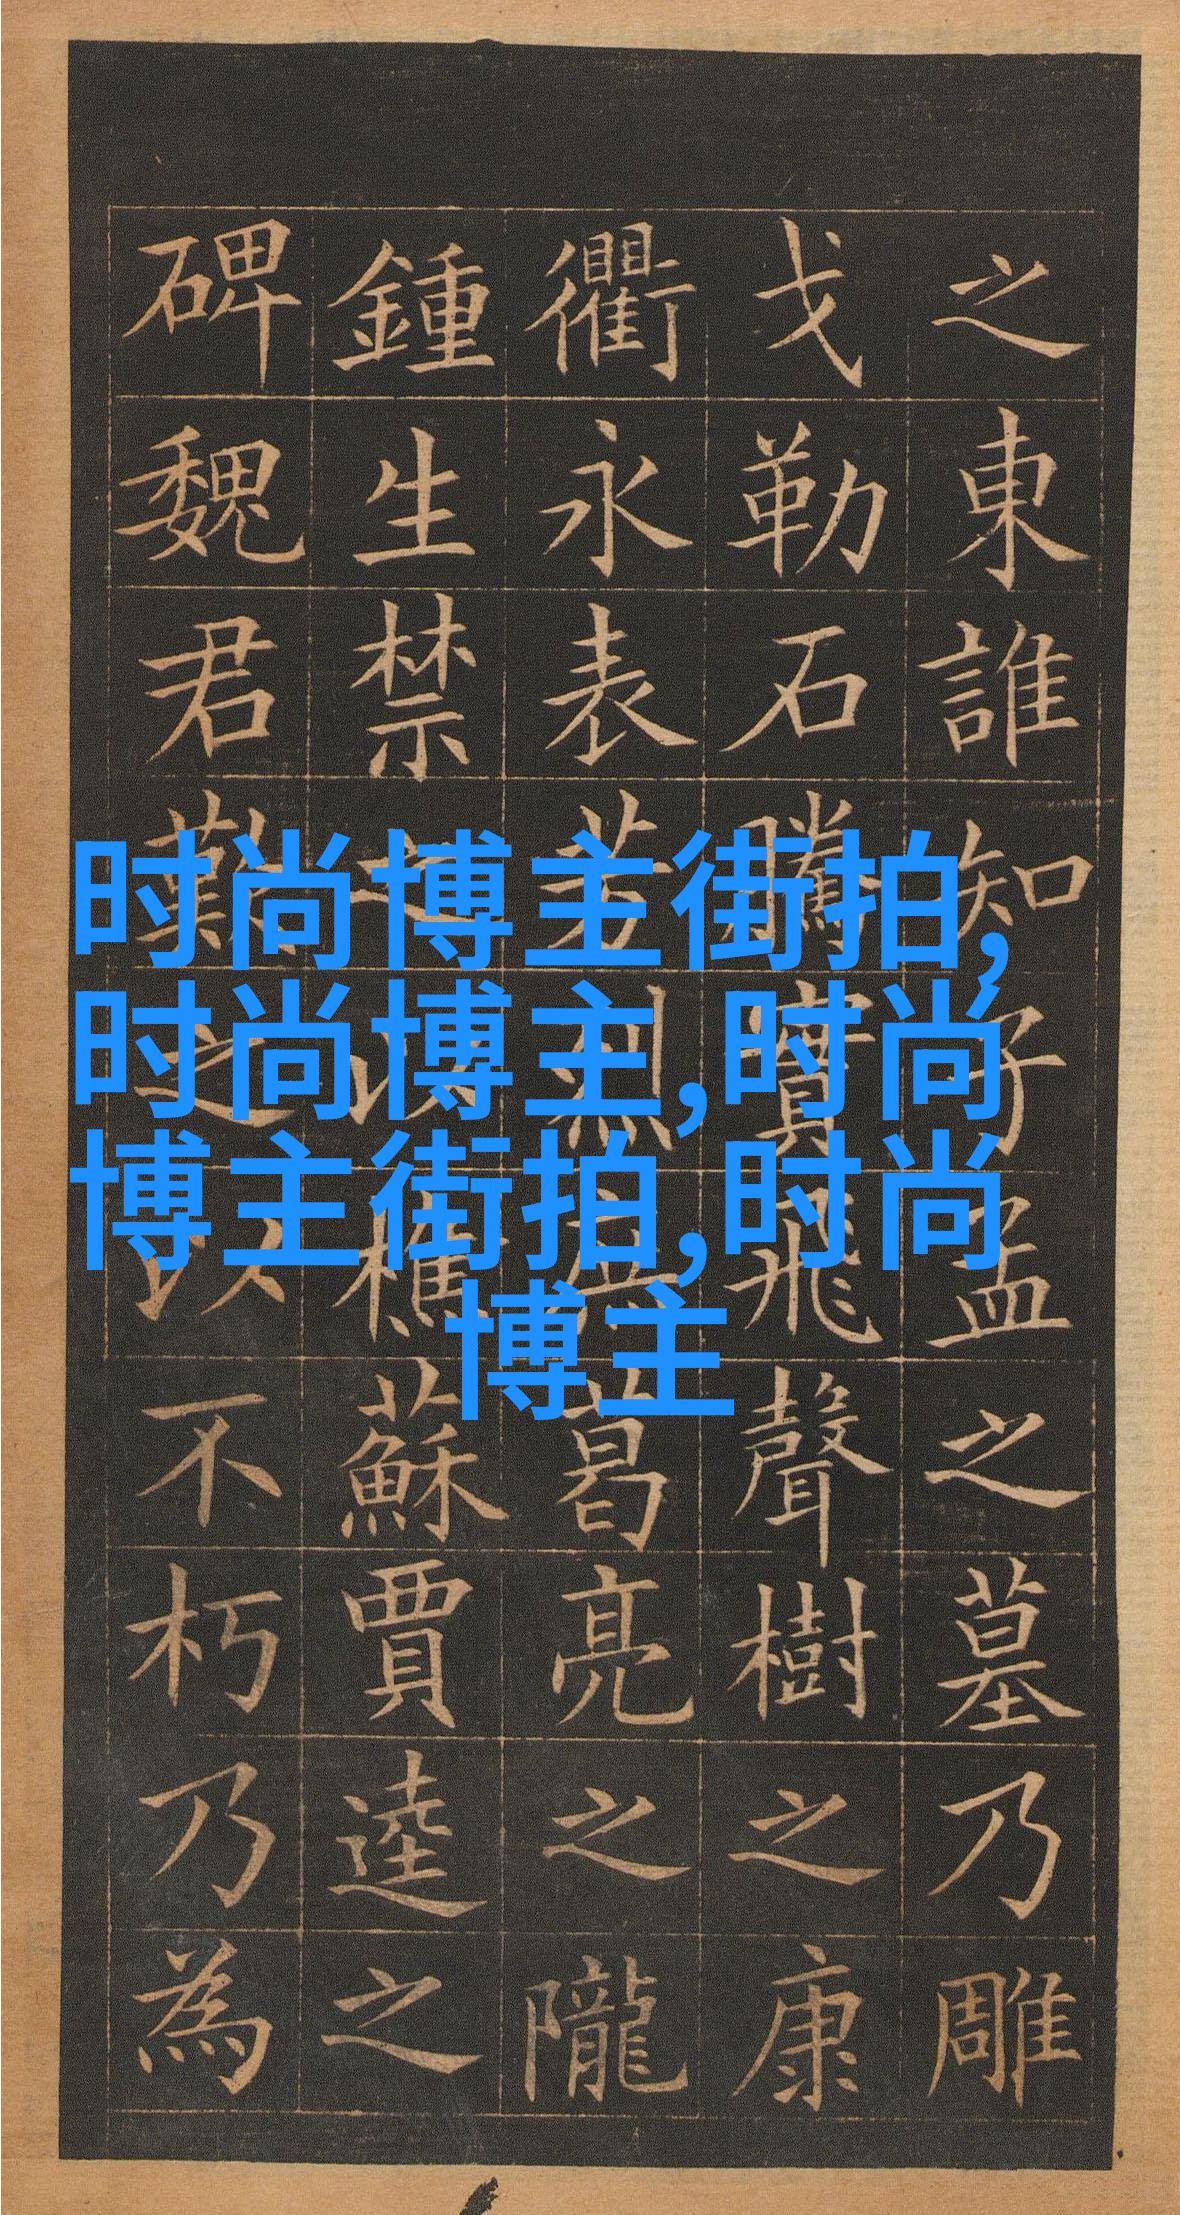 之東誰知子孟之墓乃雕
戈勒石騰實飛聲樹之康
衢永表芳烈葛亮之隴
鍾生禁之以樵蘇賈逵之
碑魏君之以不朽乃為
时尚博主街拍,
时尚博主,时尚
博主街拍,时尚
博主